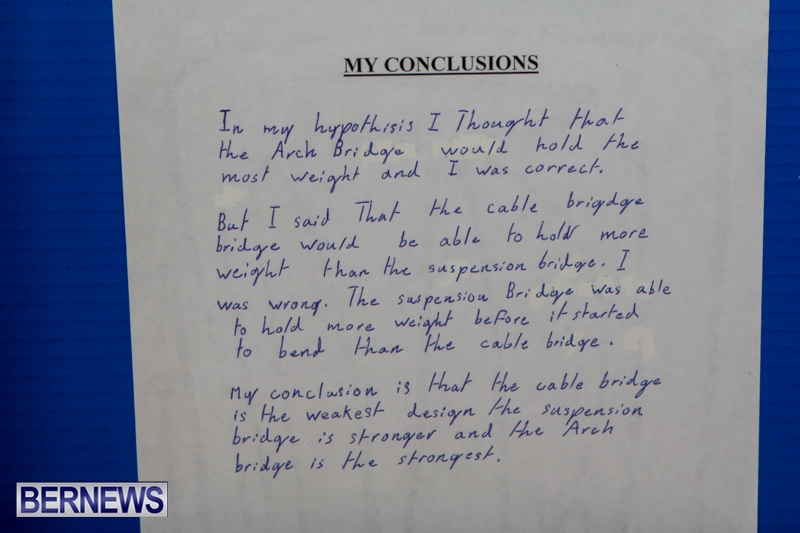 MY CONCLUSIONS
In my hypothisis I Thought that
the Arch Bridge would hold the
most weight and I was correct.
But I said That the cable brigdge
bridge would be able to hold more
weight than the suspension bridge. I
was wrong. The suspension Bridge was able
to hold more weight before it started
to bend than the cable bridge.
My conclusion is that the cable bridge
is the weakest design the suspension
bridge is stronger and the Arch
bridge is the strongest.
BERNEWS